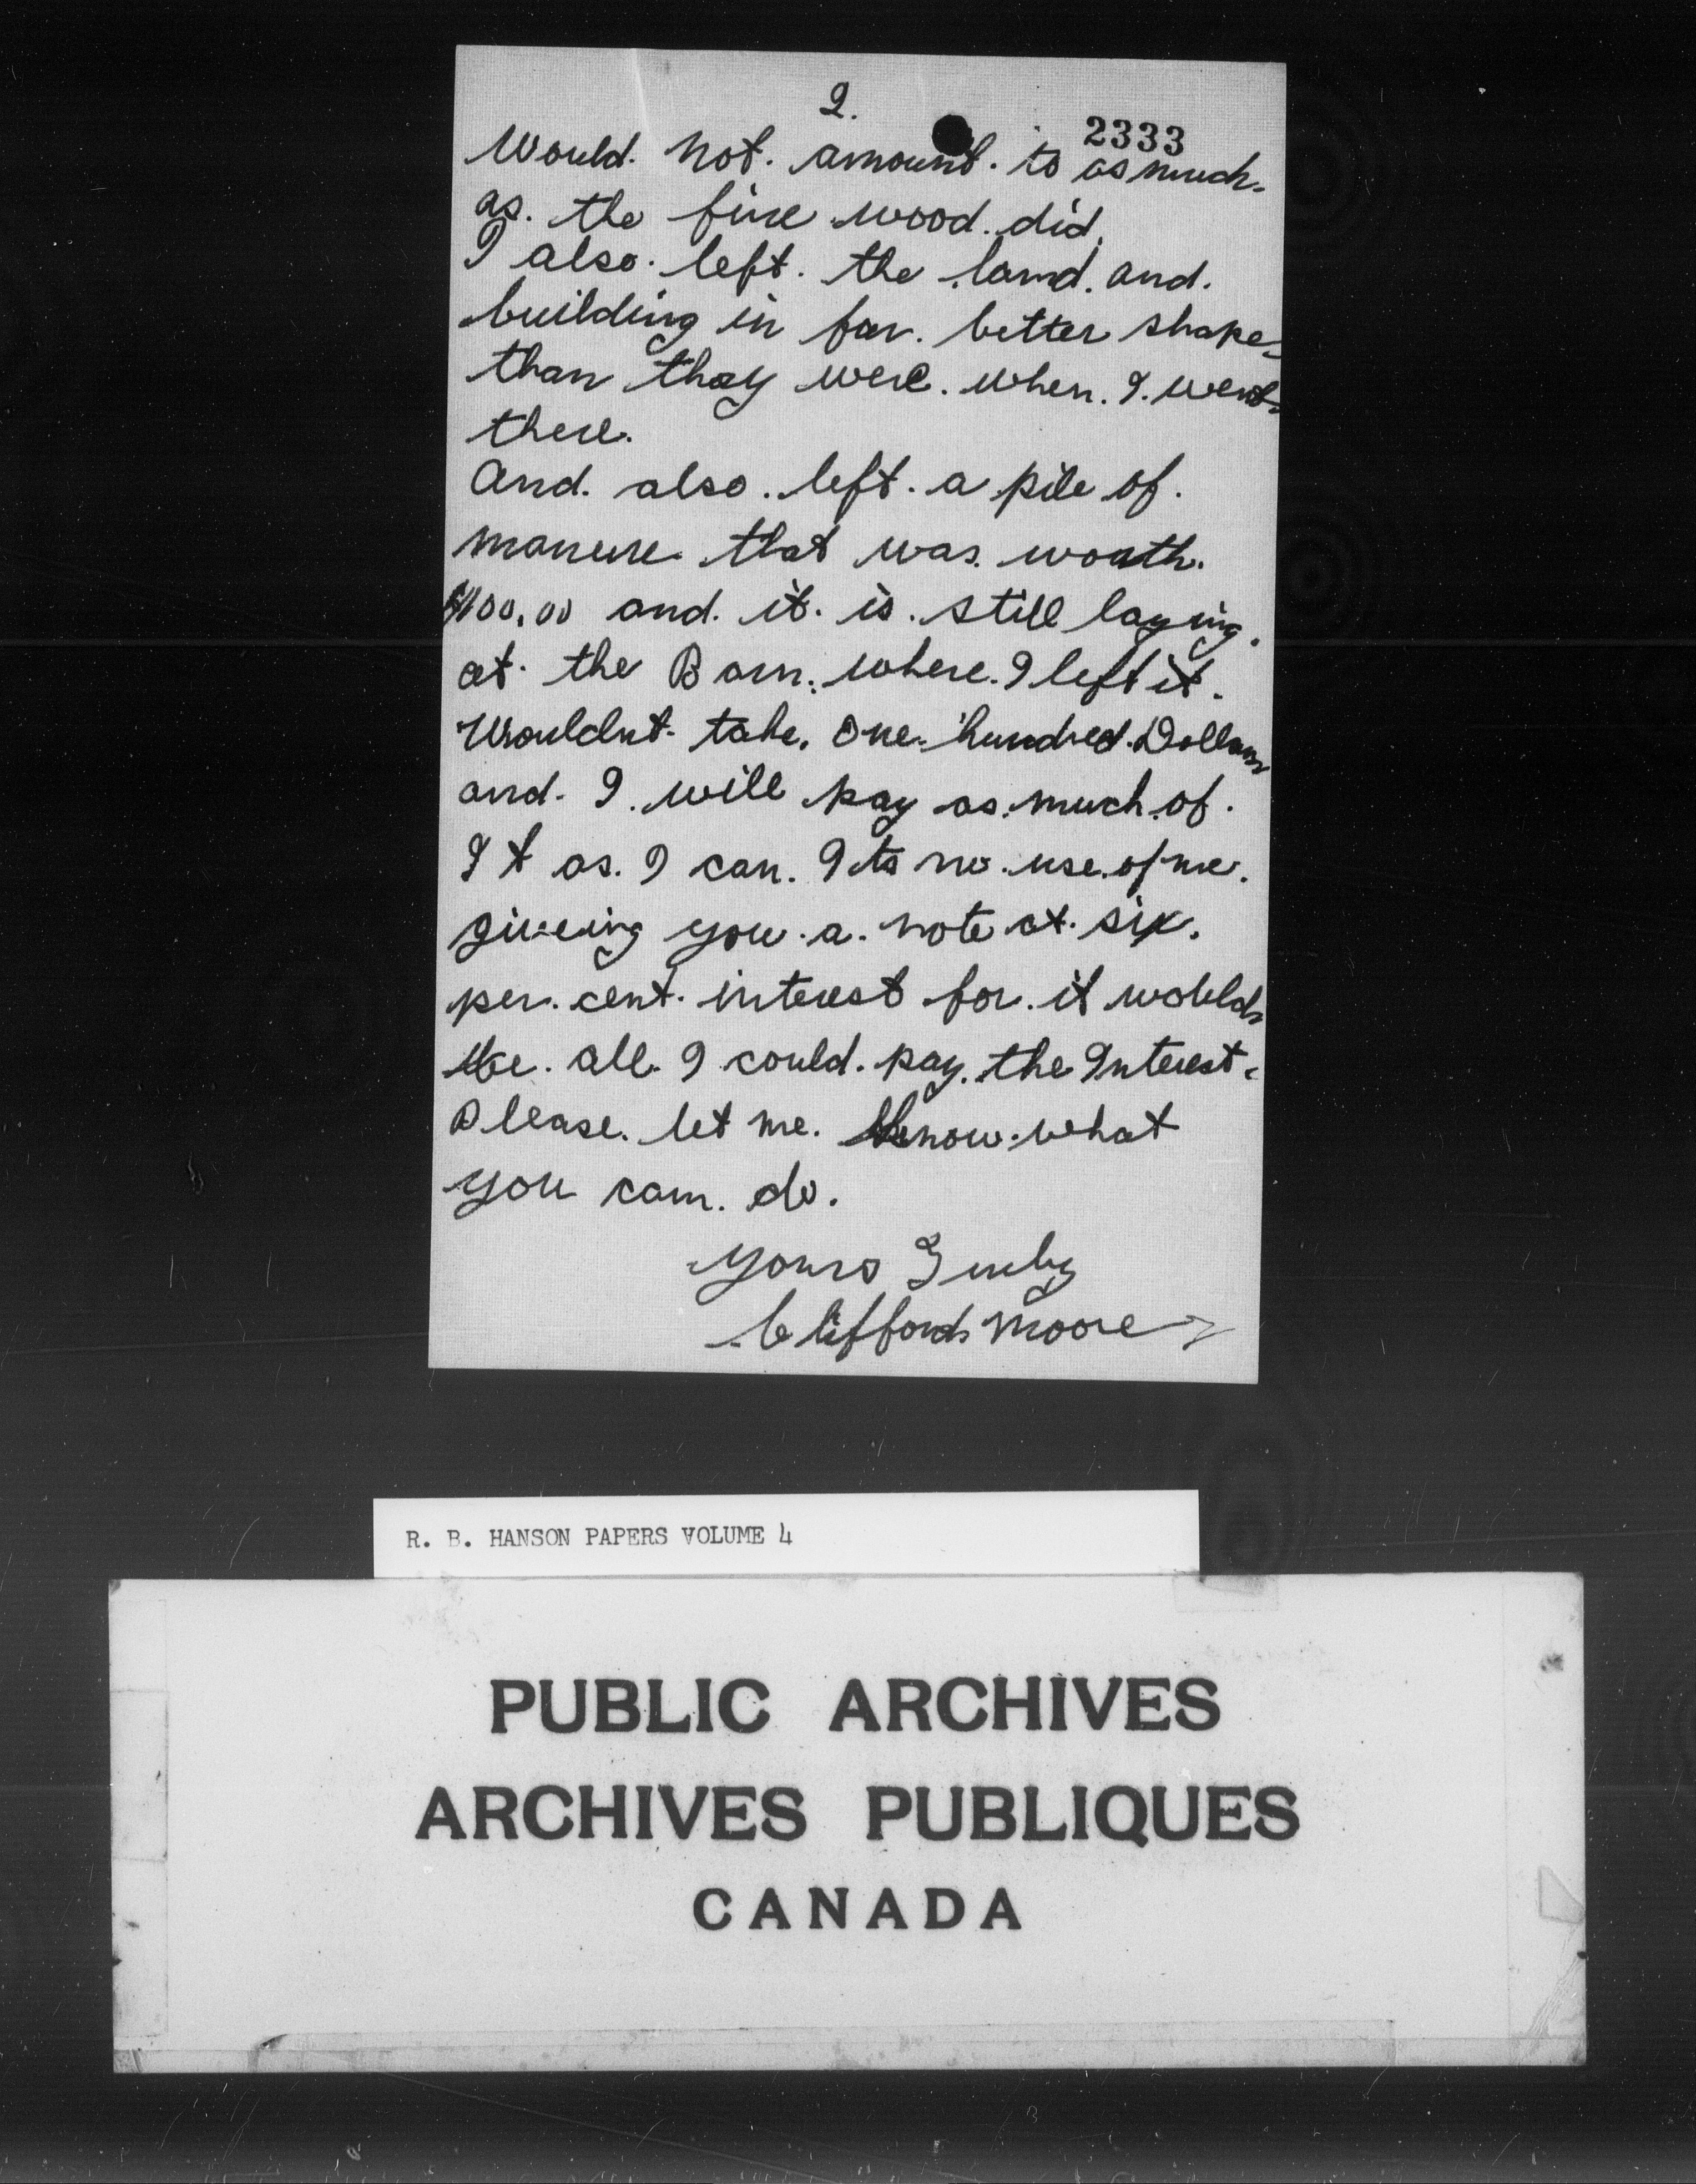 2.
2333
Would. not. amount. to as much.
as. the fire wood. did.
I also. left. the land. and.
building in far. better shape.
than they were. when. I. went.
there.
And. also. left. a pile of.
manure that was. worth.
$100.00 and. it. is. still laying.
at. the Barn. where. I left it.
Wouldnt. take. One. hundred. Dollars
and. I. will pay as. much. of.
It as. I can. Its no. use. of me.
giveing you. a. note at. six.
per. cent. interest for. it would
be. all. I could. pay. the Interest.
Please. let me. know. what
you can. do.
yours Truly
Clifford Moore
R. B. HANSON PAPERS VOLUME 4
PUBLIC ARCHIVES
ARCHIVES PUBLIQUES
CANADA